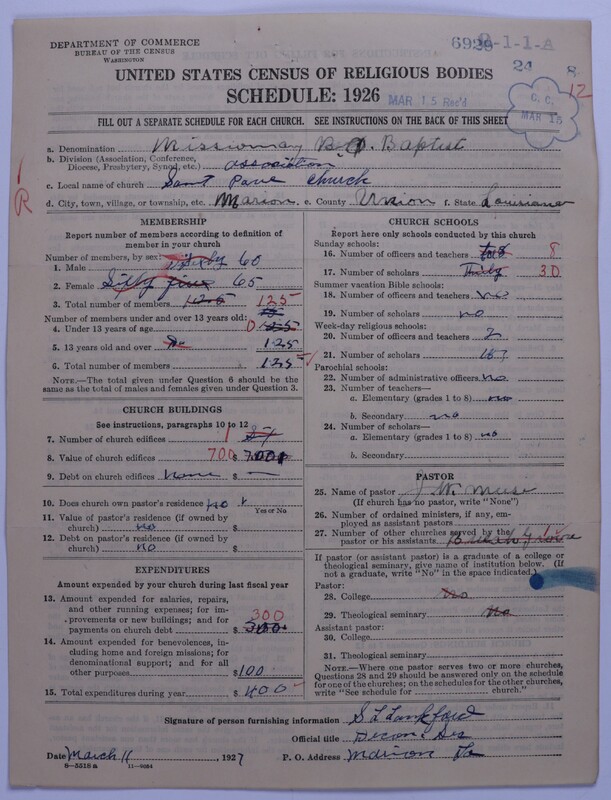 DEPARTMENT OF COMMERCE
BUREAU OF THE CENSUS
WASHINGTON
6929 9-1-1-A
24 8
12
UNITED STATES CENSUS OF RELIGIOUS BODIES
SCHEDULE: 1926
MAR 15 Rec'd
C. C.
MAR 18
FILL OUT A SEPARATE SCHEDULE FOR EACH CHURCH. SEE INSTRUCTIONS ON THE BACK OF THIS SHEET
a. Denomination Missionary Baptist
b. Division (Association, Conference, Diocese, Presbytery, Synod, etc.) association
c. Local name of church Sant Paul Church
d. City, town, village, or township, etc. Marion e. County Union f. State Louisiana
R
MEMBERSHIP
Report number of members according to definition of member in your church
Number of members, by sex:
1. Male Sixty 60
2. Female Sixty five 65
3. Total number of members 125 125
Number of members under and over 13 years old:
4. Under 13 years of age 0 125
5. 13 years old and over 125
6. Total number of members 125
NOTE.—The total given under Question 6 should be the same as the total of males and females given under Question 3.
CHURCH BUILDINGS
See instructions, paragraphs 10 to 12
7. Number of church edifices 1
8. Value of church edifices 700 $ 700
9. Debt on church edifices none $ —
10. Does church own pastor's residence? no
Yes or No
11. Value of pastor's residence (if owned by church) no $
12. Debt on pastor's residence (if owned by church) no $
EXPENDITURES
Amount expended by your church during last fiscal year
13. Amount expended for salaries, repairs, and other running expenses; for improvements or new buildings; and for payments on church debt 300 $ 300
14. Amount expended for benevolences, including home and foreign missions; for denominational support; and for all other purposes $ 100
15. Total expenditures during year $ 400
CHURCH SCHOOLS
Report here only schools conducted by this church
Sunday schools:
16. Number of officers and teachers 8
17. Number of scholars Thirty 30
Summer vacation Bible schools:
18. Number of officers and teachers no
19. Number of scholars no
Week-day religious schools:
20. Number of officers and teachers 2
21. Number of scholars
Parochial schools:
22. Number of administrative officers no
23. Number of teachers—
a. Elementary (grades 1 to 8) no
b. Secondary no
24. Number of scholars—
a. Elementary (grades 1 to 8) no
b. Secondary
PASTOR
25. Name of pastor J. W. Muse
(If church has no pastor, write "None")
26. Number of ordained ministers, if any, employed as assistant pastors
27. Number of other churches served by the pastor or his assistants 1
If pastor (or assistant pastor) is a graduate of a college or theological seminary, give name of institution below. (If not a graduate, write "No" in the space indicated.)
Pastor:
28. College No
29. Theological seminary No
Assistant pastor:
30. College
31. Theological seminary
NOTE.—Where one pastor serves two or more churches, Questions 28 and 29 should be answered only on the schedule for one of the churches; on the schedules for the other churches, write "See schedule for church."
Signature of person furnishing information S L Lankford
Official title Decon
Date March 11, 1927 P. O. Address Marion La
8—5518 a 11—9024